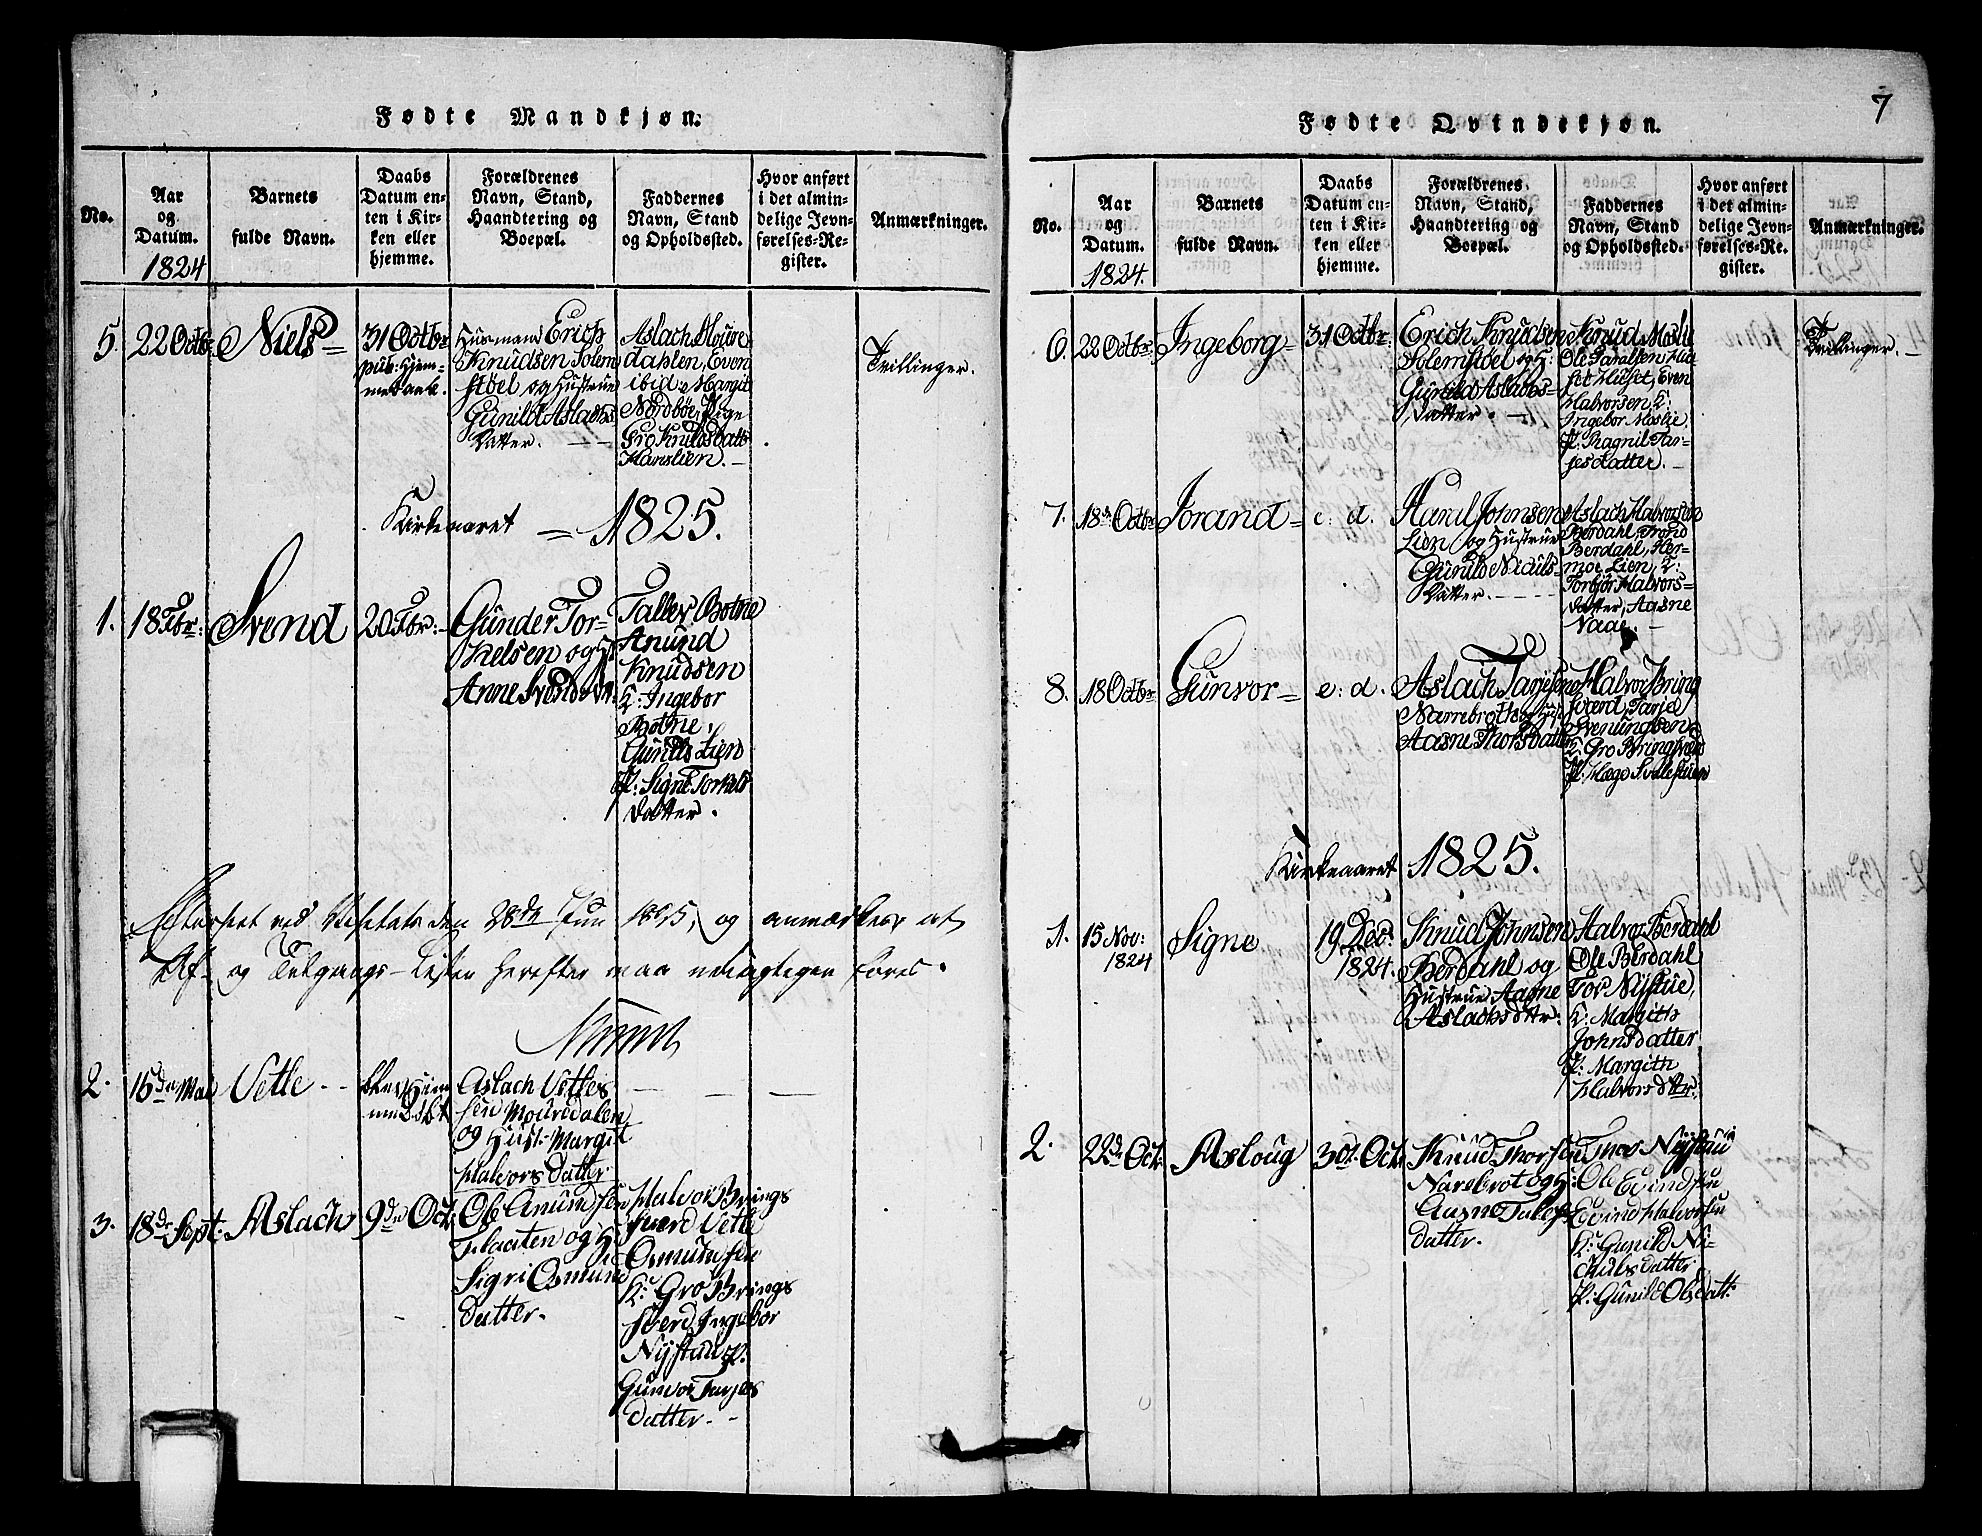 Fødte Mandkjøn.
No.
Aar
og
Datum.
1824
Barnets
fulde Navn.
Daabs
Datum en-
ten i Kir-
ken eller
hjemme.
Forældrenes
Navn, Stand,
Haandtering og
Boepæl.
Faddernes
Navn, Stand
og Opholdssted.
Hvor anført
i det almin-
delige Jevn-
førelses-Re-
gister.
Anmærkninger.
5.
22 Octbr
Niels
31 Octbr
pub: Hjem-
medaab.
Husmand Erich
Knudsen Solem
støel og Hustrue
Gunild Aslachs
Datter.
Aslach Moure
dahlen, Even
ibid: Margit
Nordbøe, Pige
Gro Knudsdatt
Hanslien.
Trillinger.
Kirkeaaret 1825.
1.
18
Svend
20
Gunder Tor-
kelsen og H:
Anne Svends
Tallev Botne
Anund
Knudsen
K: Ingebor
Botne,
Gunild Lien
P: Signe Torkels
datter.
Efterseet ved Visitats den 28de Jun 1825, og anmærkes at
Af- og Tilgangs-Lister herefter maa nøiagtigen føres.
2.
16de Mai
Vetle
Aslach Vetles
sen Mouredalen
og Hust: Margit
Halvors datter
3.
18de Sept:
Aslach
9de Oct.
Ole Amundsen
Plaaten og H:
Sigri Osmund
datter.
Halvor Brings
værd Vetle
Osmundsen
K: Gro Brings
værd Ingebor
Nystau P:
Gunvor Tarjes
datter.
7
Fødte Qvindekjøn.
No.
Aar
og
Datum.
1824.
Barnets
fulde Navn.
Daabs
Datum en-
ten i Kir-
ken eller
hjemme.
Forældrenes
Navn, Stand,
Haandtering og
Boepæl.
Faddernes
Navn, Stand
og Opholdssted.
Hvor anført
i det almin-
delige Jevn-
førelses-Re-
gister.
Anmærkninger.
6.
22 Octbr
Ingeborg
31 Octbr
Erich Knudsen
Solemstøel og H:
Gunild Aslachs-
Datter.
Knud Moslie
Ole
Huset, Even
Halvorsen, K:
Ingebor Moslie,
P: Ragnil Tar-
jesdatter.
Trillinger.
7.
18de Octbr
Jorand
e: d.
Johnsen
Lien og Hustrue
Gunild Niculs-
Datter.
Aslach Halvorsen
Berdahl, Trond
Berdahl, Her-
moe Lien, K:
Torbjør Halvors-
datter, Aasne
Vaae.
8.
18 Octbr
Gunvor
e: d.
Aslach Tarjesen
Narrebroth og H:
Aasne Thorsdatter
Halvor Bring
sværd, Tarje
Svenungsen
K: Gro Bringsverd
P: Hæge
Kirkeaaret 1825.
1.
15 Nov:
1824
Signe
19 Dec:
1824.
Knud Johnsen
Berdahl og
Hustrue Aasne
Aslachsdtr.
Halvor Berdahl
Ole Berdahl
Tor Nystue,
K: Margith
Johnsdatter
P: Margith
Halvorsdtr.
2.
22de Oct.
Asloug
30t. Oct.
Knud Thorsen
Narebrot og H:
Aasne Talefs
datter.
Thor Nystaui
Ole Evindsen
Evind Halvorsen
K: Gunild Ni-
culs datter
P: Gunild Olsdatt: